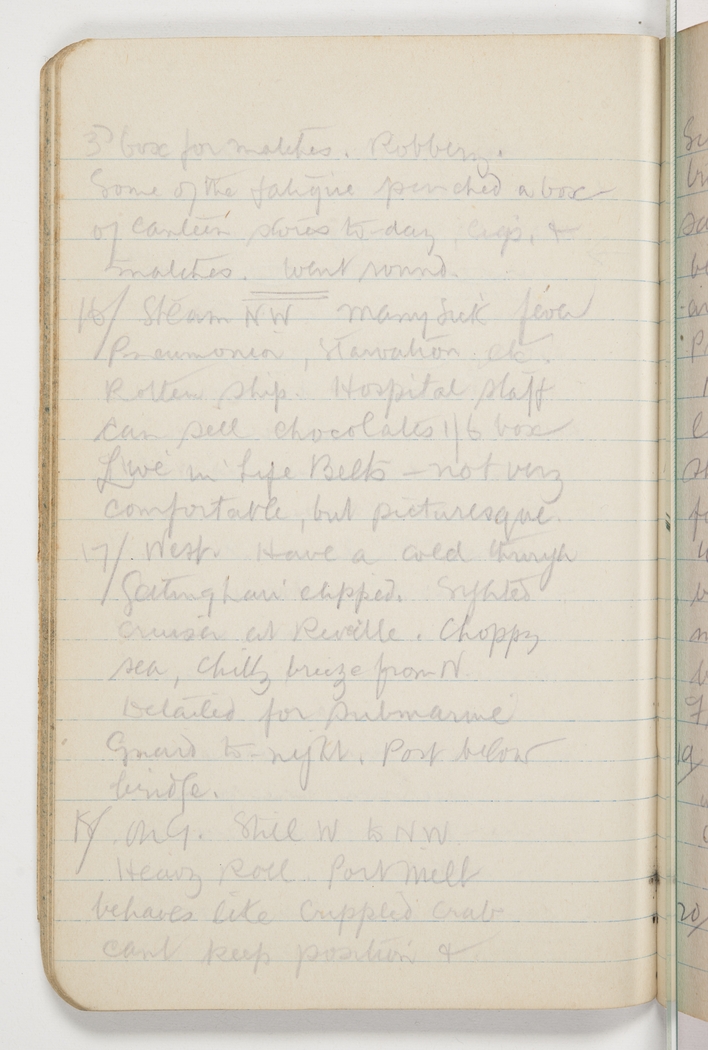 3D box for matches. Robbery.
Some of the fatigue pinched a box
of canteen stores to-day, cigs, &
matches. Went round.
16/ Steam NW many sick fever
Pneumonia, Starvation etc.
Rotten ship. Hospital staff
can sell chocolates 1/6 box
Live in Life Belts – not very
comfortable, but picturesque.
17/. West. Have a cold through
getting hair clipped. Sighted
cruiser at Reveille. Choppy
sea, chilly breeze from N.
Detailed for submarine
Guard to-night. Post below
bridge.
18/. On G. Still W to NW
Heavy Roll. Port Melb
behaves like crippled crab
cant keep position &